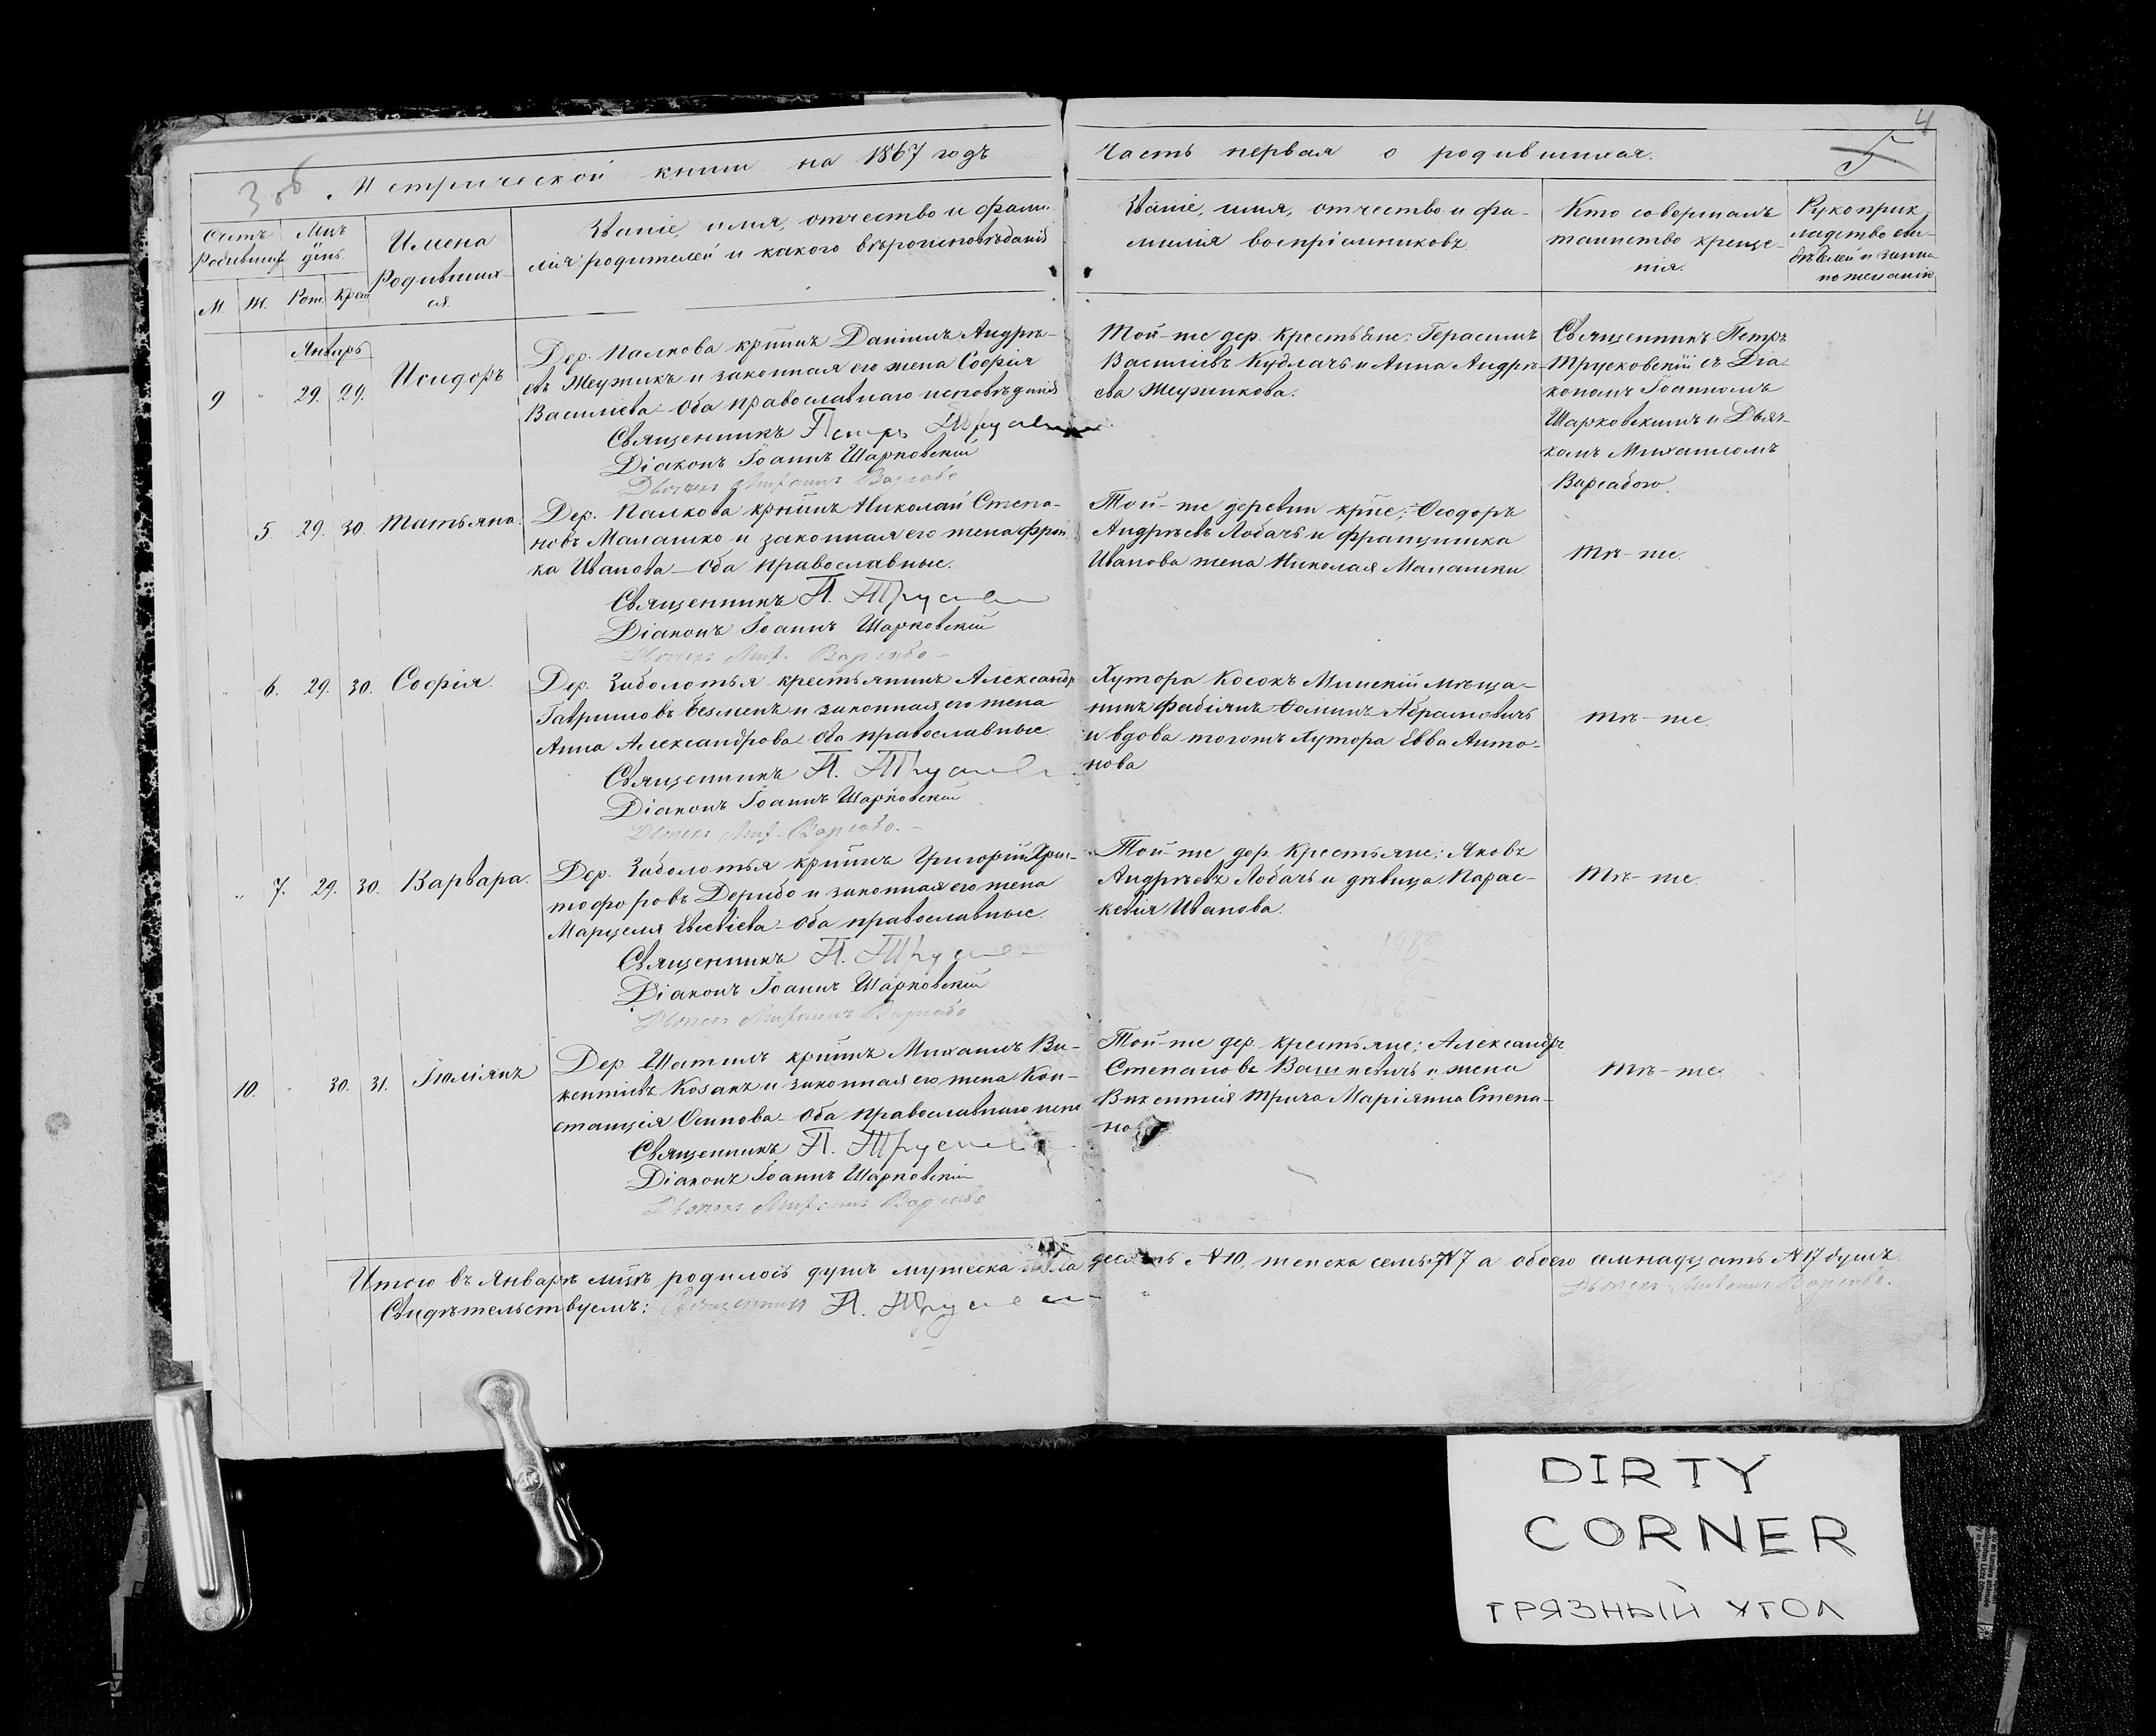 4
Метрической книги на 1867 годъ
Часть первая о родившихся.
Счетъ Родивших
Мцъ день
Имена Родившихся.
Званіе, имя, отчество и фамилія родителей и какого вѣроисповѣданія
Званіе, имя, отчество и фамилія воспріемниковъ.
Кто совершалъ таинство крещенія.
Рукоприкладство свидѣтелей и записи по желанію
М. Ж. Рож. Крещ
Январь
9 " 29. 29. Исидоръ
Дер. Палкова крнинъ Даніилъ Андре-
евъ Жечжикъ и законная его жена Софія
Василіева – Оба православнаго исповѣданія
Священникъ Петръ
Діаконъ Іоаннъ Шарковскій
Той-же дер. Крестьяне: Герасимъ
Василіевъ Кудлачъ и Анна Андрѣ-
ева
Священникъ Петръ
Трусковскій съ Діа-
кономъ Іоанномъ
Шарковскимъ и Дьяч-
комъ Михаиломъ
Варсабою.
5 29. 30. Татьяна.
Дер. Палкова крнинъ Николай Степа-
новъ Малашко и законная его жена
ка Иванова – Оба Православные.
Священникъ П.
Діаконъ Іоаннъ Шарковскій
Той-же деревни крне: Ѳеодоръ
Андрѣевъ Лобачъ и Францишка
Иванова жена Николая Малашки
тѣ-же.
" 6. 29. 30. Софія.
Дер. Заболотья крестьянинъ Александръ
Гавриловъ Безменъ и законная его жена
Анна Александрова – Оба православные
Священникъ П.
Діаконъ Іоаннъ Шарковскій
Хутора Косокъ Минскій мѣща-
нинъ Фабіянъ Ѳоминъ Абрамовичъ
и вдова тогожъ Хутора Евва Анто-
нова
тѣ-же.
" 7. 29. 30. Варвара.
Дер. Заболотья крнинъ Григорій Хрис-
тофоровъ Дерибо и законная его жена
Марцеля Евсевіева – Оба православные.
Священникъ П.
Діаконъ Іоаннъ Шарковскій
Той-же дер. Крестьяне: Яковъ
Андрѣевъ Лобачъ и дѣвица Парас-
кевія Иванова.
тѣ-же.
10. " 30. 31. Іюліянъ
Дер. Шатилъ крнинъ Михаилъ Ви-
кентіевъ Козакъ и законная его жена Кон-
станція Осипова – Оба православнаго испо
Священникъ П.
Діаконъ Іоаннъ Шарковскій
Той-же дер. крестьяне: Александръ
Степановъ Вашкевичъ и жена
Викентія Трича Маріянна Степа-
но
тѣ-же.
Итого въ Январѣ мцѣ родилось душъ мужеска пола десять №10, женска семь №7 а обоего семнадцать №17 душъ.
Свидѣтельствуемъ: Священникъ П.
DIRTY
CORNER
ГРЯЗНЫЙ УГОЛ